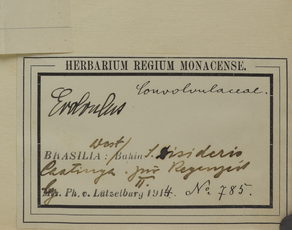 HERBARIUM REGIUM MONACENSE.
Convolvulaceae.
Evolvulus
West/
BRASILIA: Bahia S. Disiderio
Caatinga
Ph. v. Lützelburg 1914 No 785.